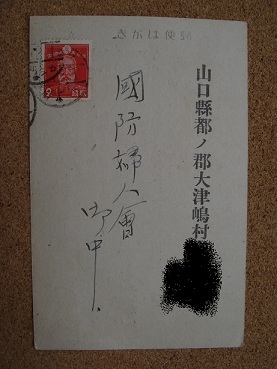 きがは便郵
山口縣都ノ郡大津嶋村
國防婦人會
御中